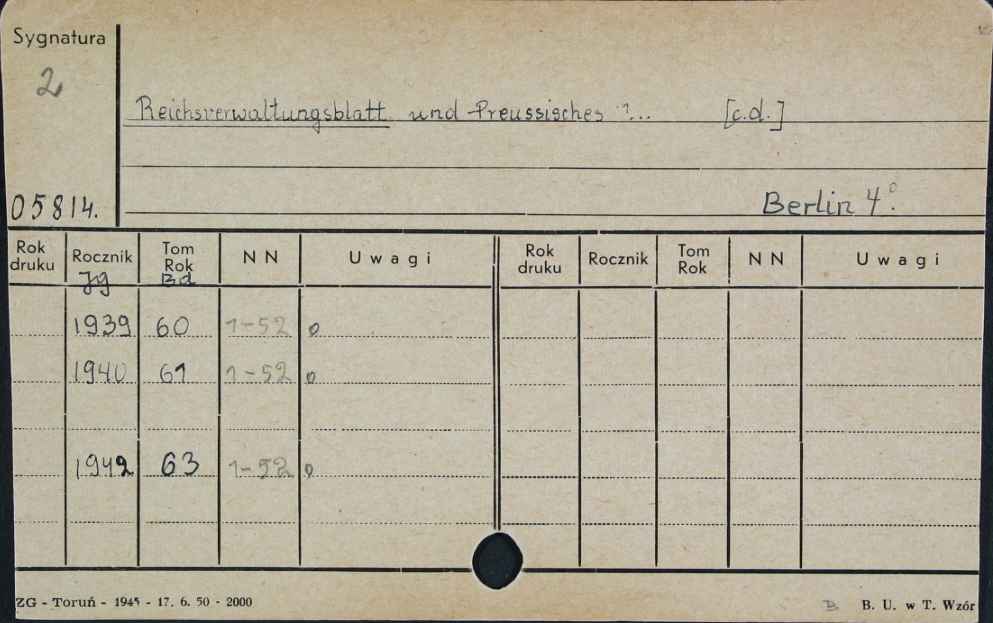 Sygnatura
2
Reichsverwaltungsblatt und Preussisches ... [c.d.]
05814.
Berlin 4°.
Rok druku Rocznik Tom Rok NN Uwagi Rok druku Rocznik Tom Rok NN Uwagi
Jg Bd
1939 60 1-52 o
1940 61 1-52 o
1942 63 1-52 o
ZG - Toruń - 1945 - 17. 6. 50 - 2000
B B. U. w T. Wzór